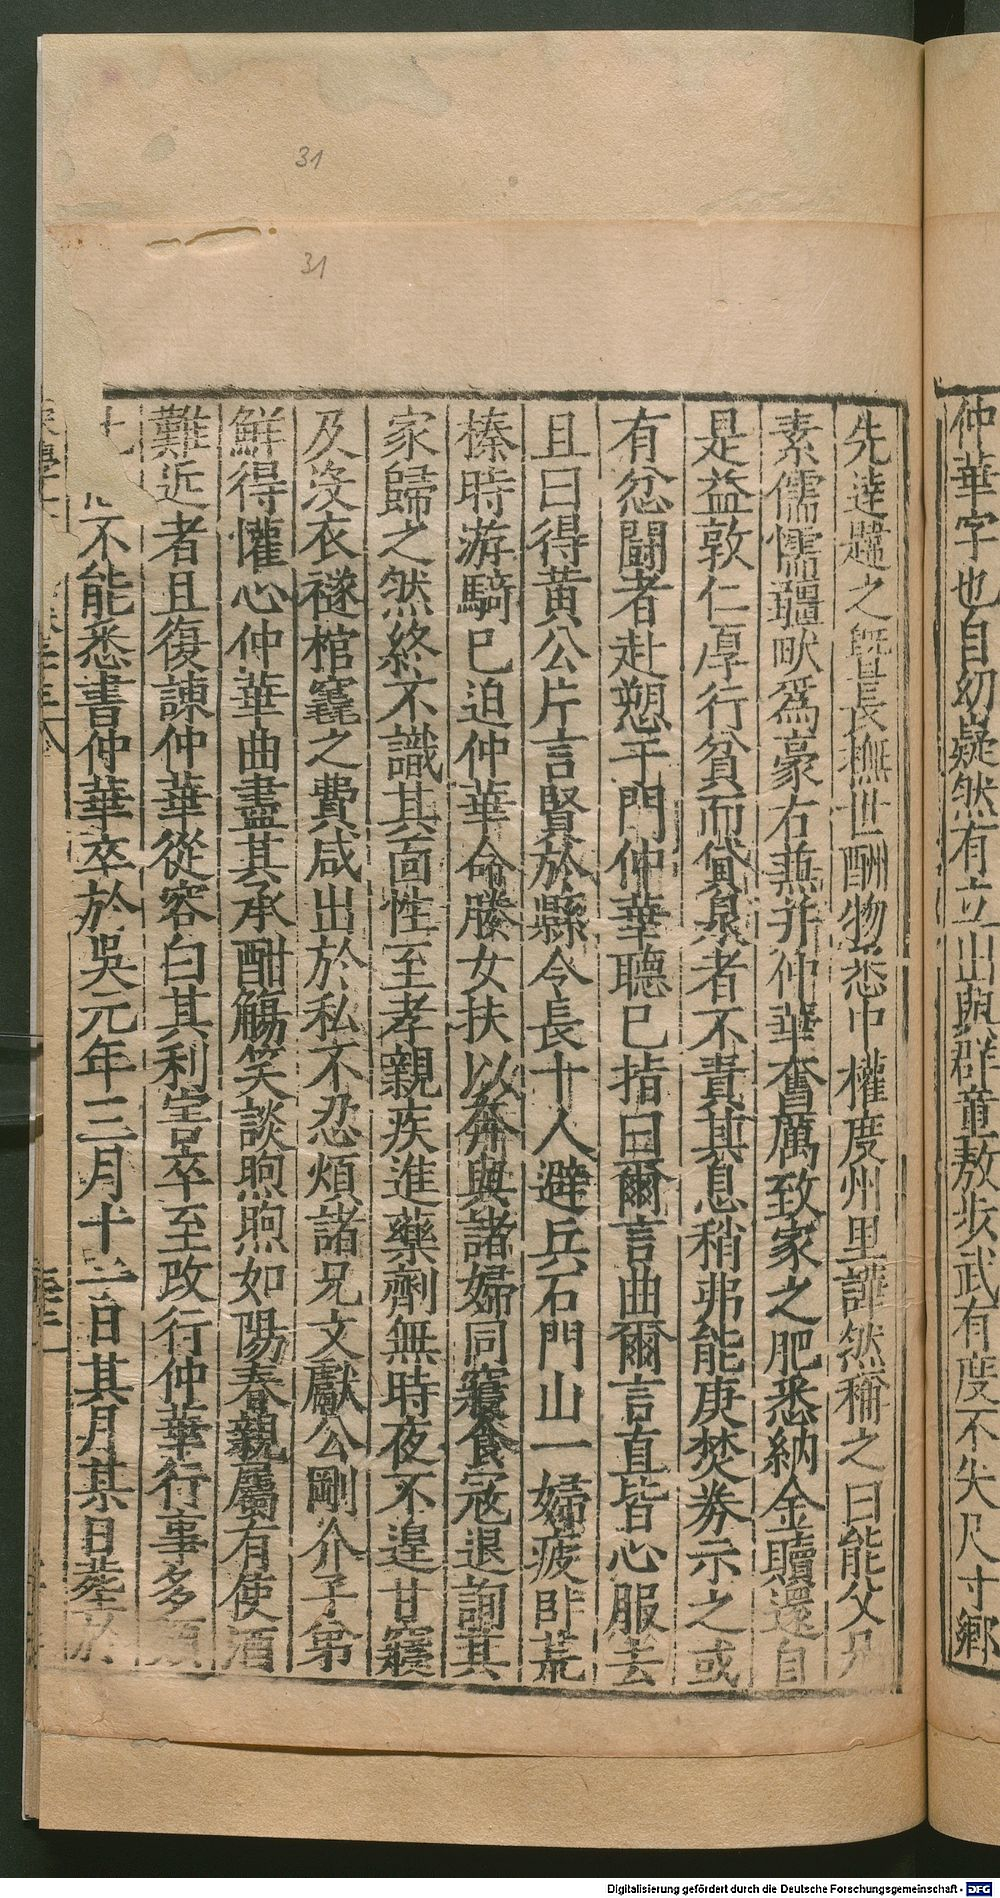 仲華字也自幼嶷然有立出與群童敖步武有度不失尺寸鄉
先達韙之曁長撫世酬物悉中權度州里譁然稱之曰能父兄
素儒懦壃畎爲豪右蕪并仲華奮厲致家之肥悉納金贖還自
是益敦仁厚行貧而貸泉者不責其息稍弗能庚焚券示之或
有忿鬪者赴愬于門仲華聽已指曰爾言曲爾言直皆心服去
且曰得黃公片言賢於縣令長十人避兵石門山一婦疲卧荒
榛時游騎已迫仲華命媵女扶以奔與諸婦同寢食冦退詢其
家歸之然終不識其面性至孝親疾進藥劑無時夜不遑甘寢
及沒衣襚棺窆之費咸出於私不忍煩諸兄文獻公剛介子弟
鮮得懽心仲華曲盡其承酣觴笑談煦煦如陽春親屬有使酒
難近者且復諫仲華從容白其利害卒至改行仲華行事多類
不能悉書仲華卒於吳元年三月十一日某月某日塟於
31
31
Digitalisierung gefördert durch die Deutsche Forschungsgemeinschaft - DFG